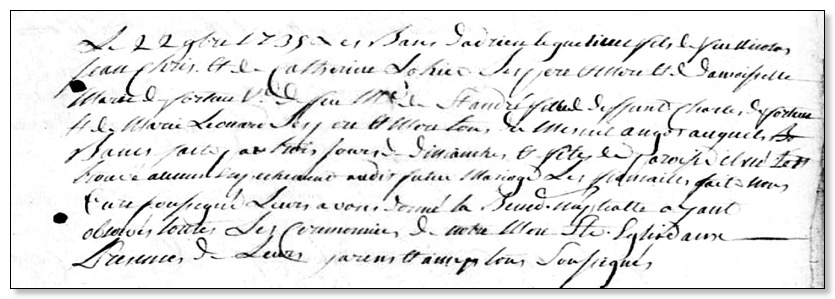 Le 22 9bre 1735 Les Bans d'adrien le quetieur fils de feu Nicolas
Jean et de Catherine ses pere et Mere et de damoiselle
Marie de fortun Ve de feu Mr de St andré fille deffunt Charles de fortun
et de Marie Leonard ses pere et Mere tous de Mesnil auger auquels
Bancs faits par trois jours de dimanches et fetes de paroisse il ne s'est
trouvé aucun empechement audit futur Mariage Les fiancailles faites nous
Curé soussigné Leurs avons donné la Bened. nuptialle ayant
observés toutes Les Ceremonies de notre Mere Ste Eglise aux
Presences de Leurs parens et amys tous soussignés